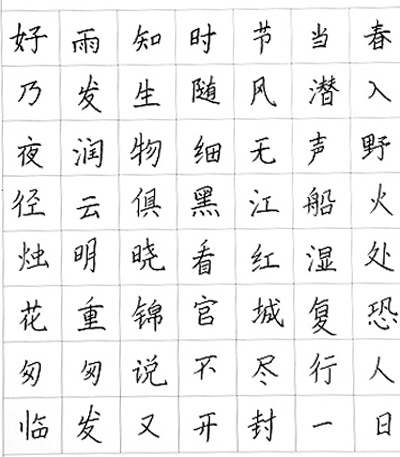 好雨知时节当春
乃发生随风潜入
夜润物细无声野
径云俱黑江船火
烛明晓看红湿处
花重锦官城复恐
匆匆说不尽行人
临发又开封一日